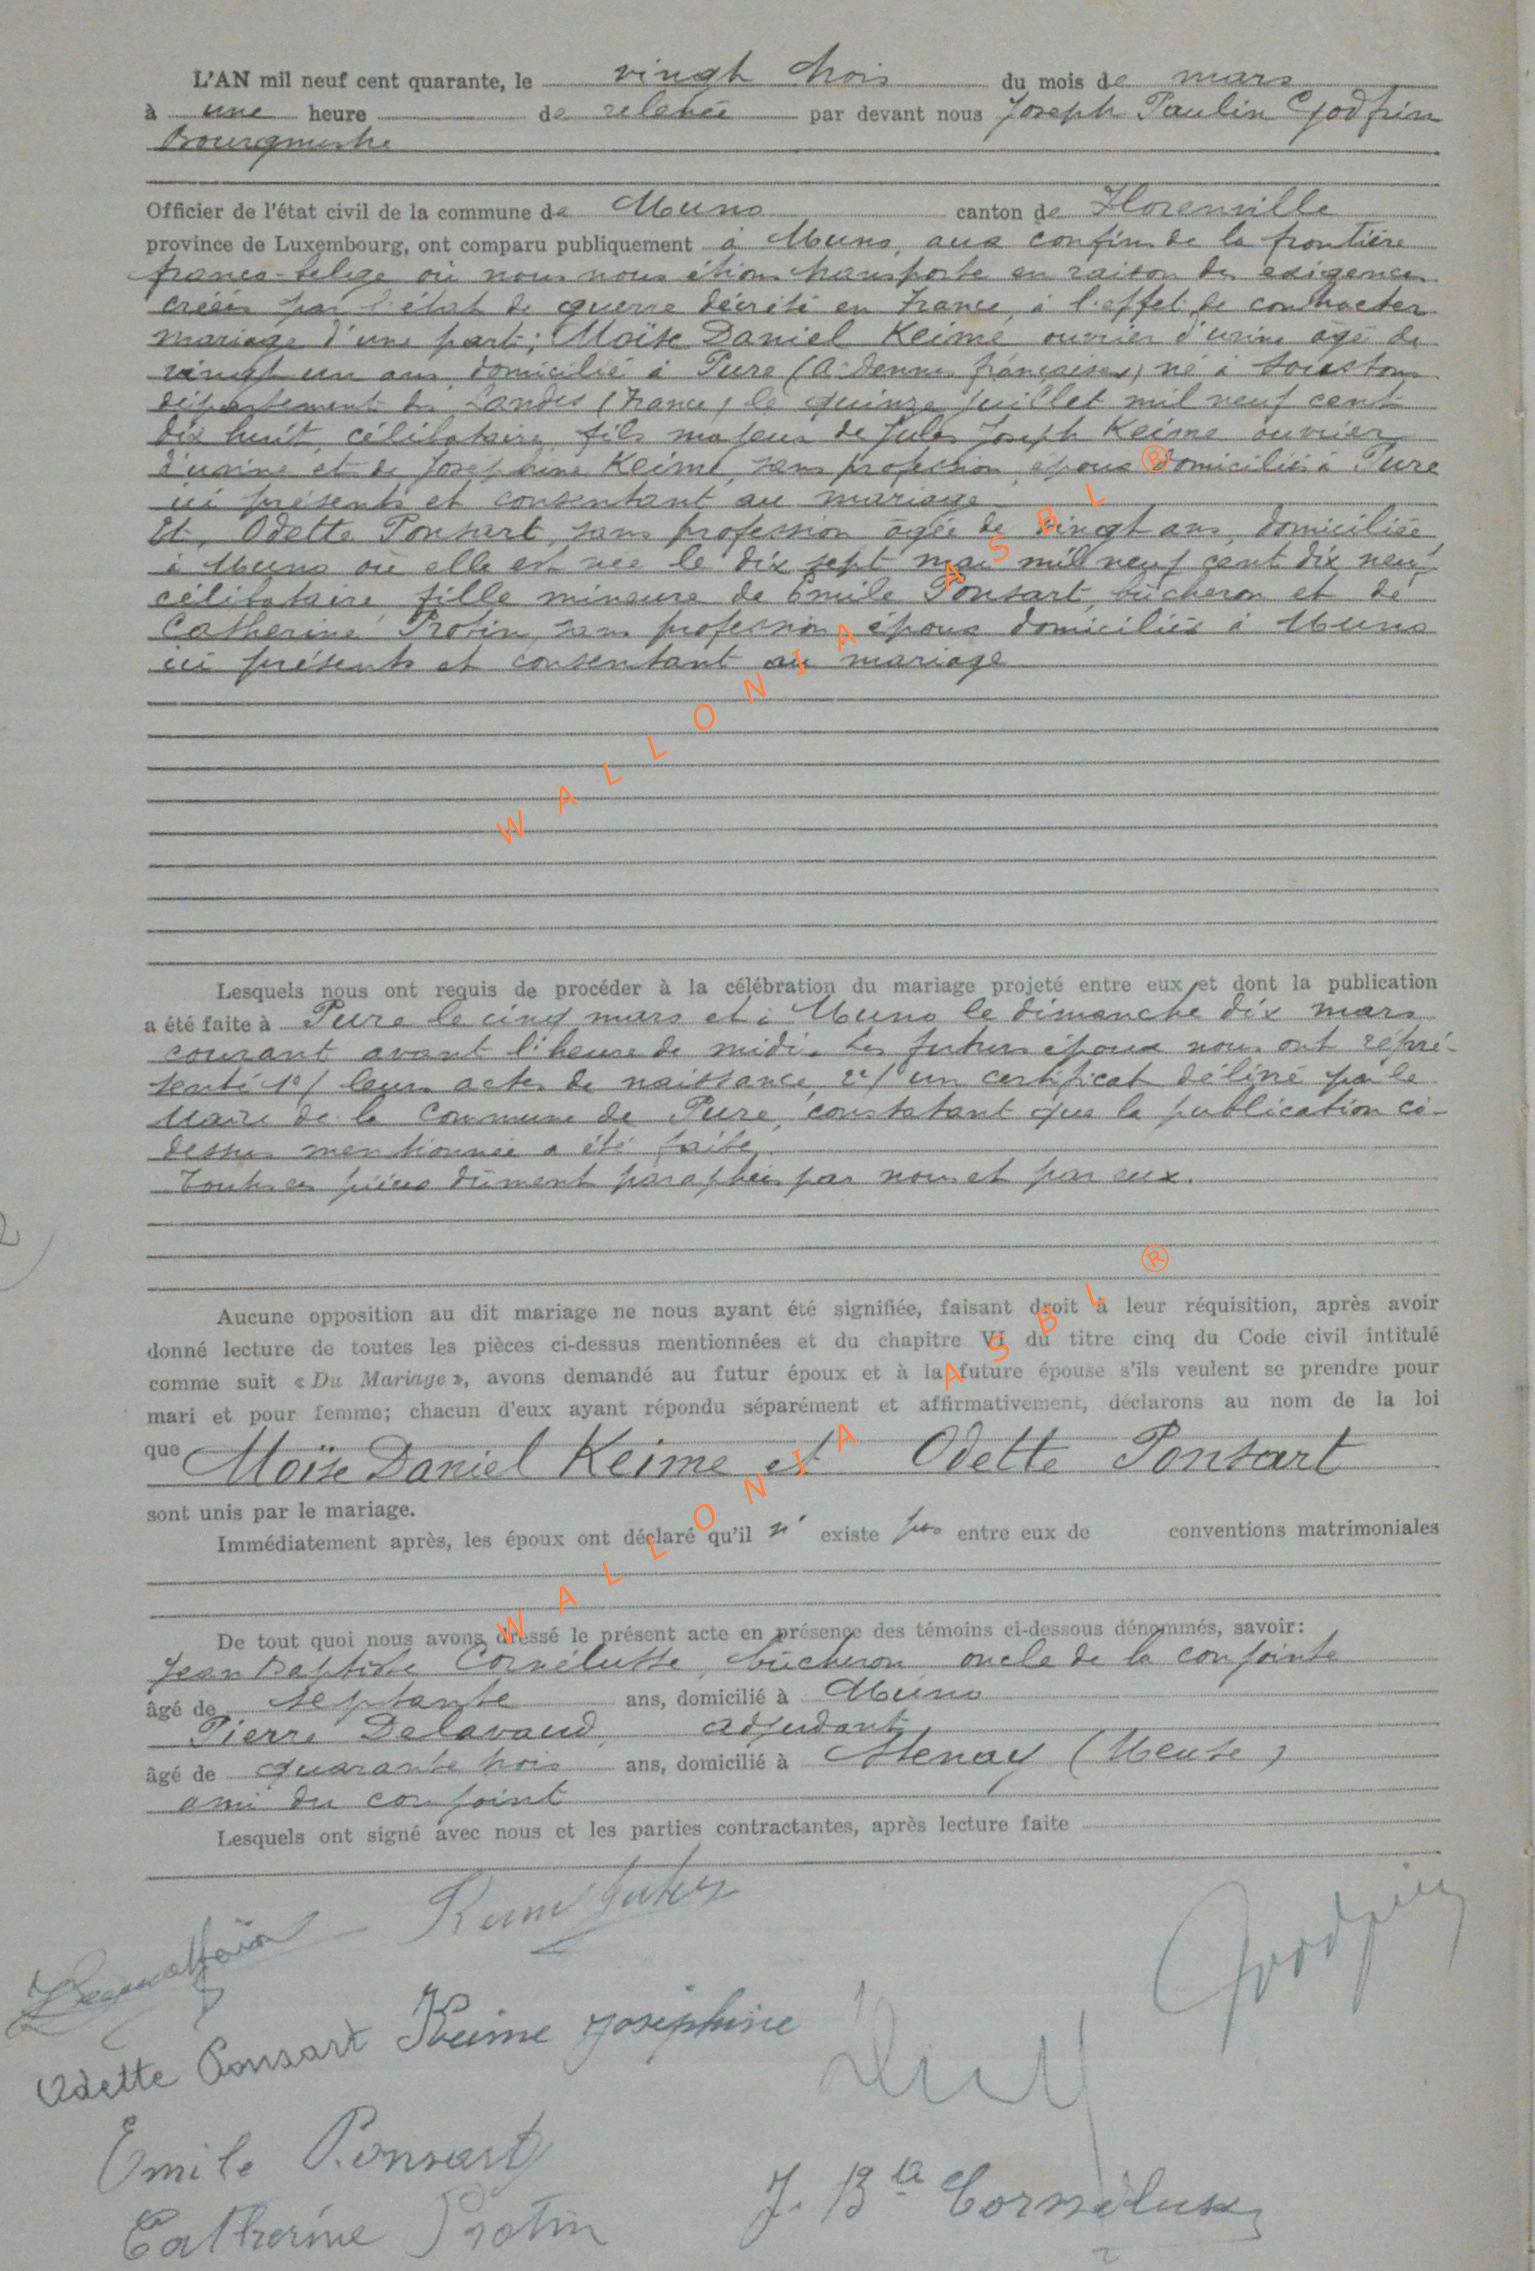 L'AN mil neuf cent quarante, le vingt trois du mois de mars
à une heure de relevée par devant nous Joseph Paulin Godfrin
Bourgmestre
Officier de l'état civil de la commune de Muno canton de Florenville
province de Luxembourg, ont comparu publiquement à Muno, aux confins de la frontière
franco-belge où nous nous étions transporté en raison des exigences
créées par l'état de guerre décrété en France, à l'effet de contracter
mariage d'une part; Moïse Daniel Keime ouvrier d'usine âgé de
vingt un ans, domicilié à Pure (Ardennes françaises) né à Soustons
département des Landes (France) le quinze juillet mil neuf cent
dix huit, célibataire, fils majeur de Jules Joseph Keime ouvrier
d'usine et de Joséphine Keime, sans profession, époux domiciliés à Pure
ici présents et consentant au mariage
Et, Odette Ponsart, sans profession âgée de vingt ans, domiciliée
à Muno où elle est née le dix sept mai mil neuf cent dix neuf,
célibataire, fille mineure de Emile Ponsart, bûcheron et de
Catherine Protin, sans profession, époux domiciliés à Muno
ici présents et consentant au mariage
Lesquels nous ont requis de procéder à la célébration du mariage projeté entre eux et dont la publication
a été faite à Pure le cinq mars et à Muno le dimanche dix mars
courant avant l'heure de midi. Les futurs époux nous ont repré-
senté 1°/ leurs actes de naissance, 2°/ un certificat délivré par le
Maire de la Commune de Pure, constatant que la publication ci-
dessus mentionnée a été faite.
Toutes ces pièces dûment paraphées par nous et par eux.
Aucune opposition au dit mariage ne nous ayant été signifiée, faisant droit à leur réquisition, après avoir
donné lecture de toutes les pièces ci-dessus mentionnées et du chapitre VI du titre cinq du Code civil intitulé
comme suit « Du Mariage », avons demandé au futur époux et à la future épouse s'ils veulent se prendre pour
mari et pour femme; chacun d'eux ayant répondu séparément et affirmativement, déclarons au nom de la loi
que Moïse Daniel Keime et Odette Ponsart
sont unis par le mariage.
Immédiatement après, les époux ont déclaré qu'il n' existe pas entre eux de conventions matrimoniales
De tout quoi nous avons dressé le présent acte en présence des témoins ci-dessous dénommés, savoir:
Jean Baptiste Cornélusse, bûcheron, oncle de la conjointe
âgé de septante ans, domicilié à Muno
Pierre Delavaud, adjudant
âgé de quarante trois ans, domicilié à Stenay (Meuse)
ami du conjoint
Lesquels ont signé avec nous et les parties contractantes, après lecture faite
Keime Jules
Godfrin
Keime Joséphine
Odette Ponsart
Emile Ponsart
J. Bte Cornélusse
Catherine Protin
WALLONIA ASBL ®
WALLONIA ASBL ®